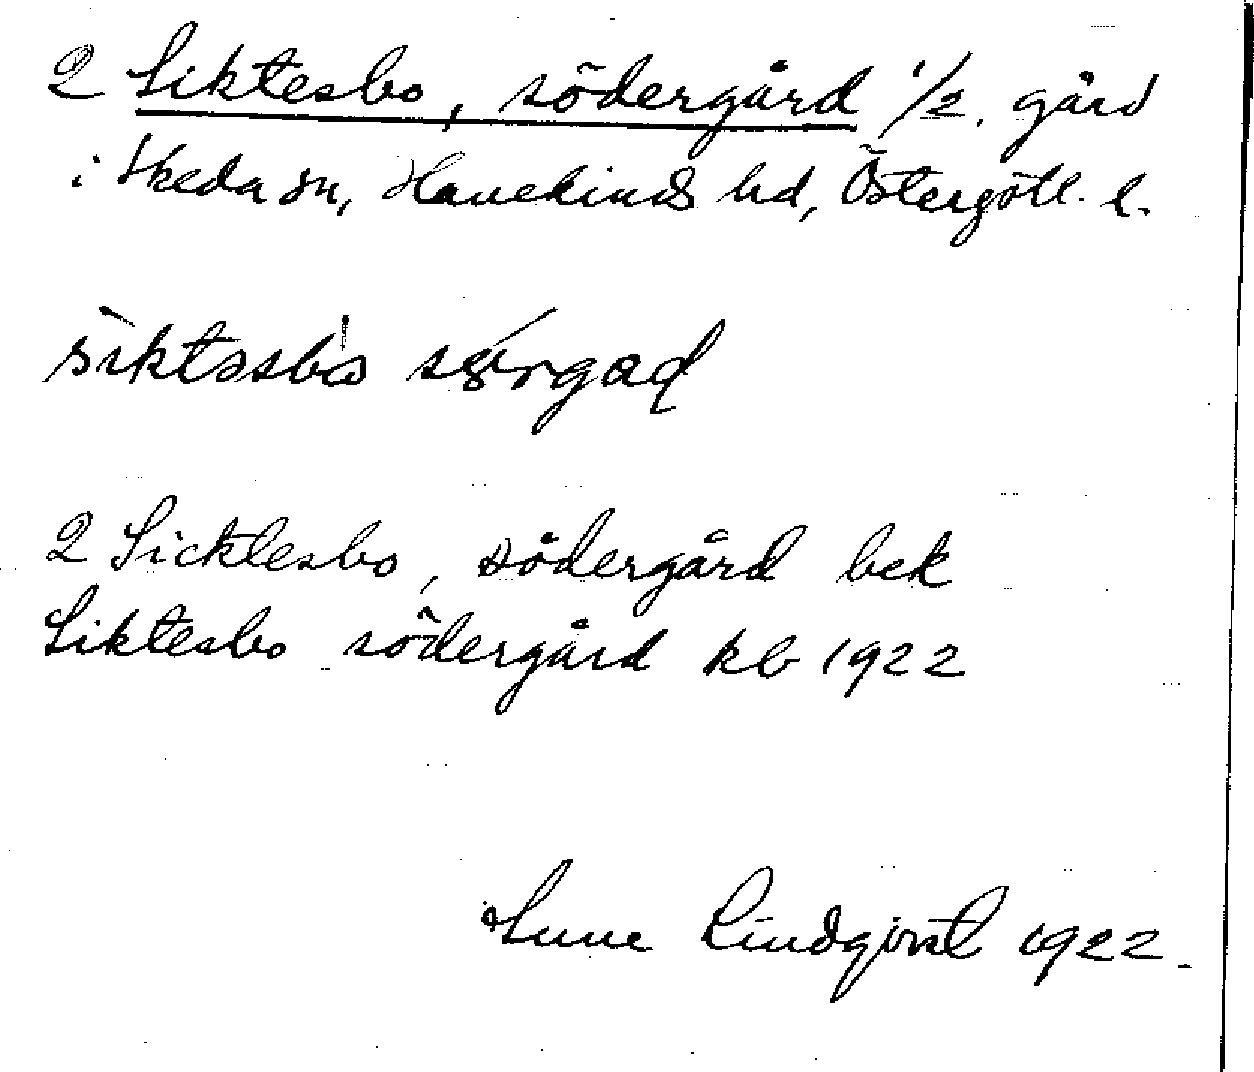 2 Siktesbo, södergård 1/2 gård
i Skeda sn, Hanekinds hd, Östergötl. l.
siktəsbò sǿrgaḍ
2 Sicktesbo, södergård bek
Siktesbo södergård kb 1922
Sune Lindqvist 1922.